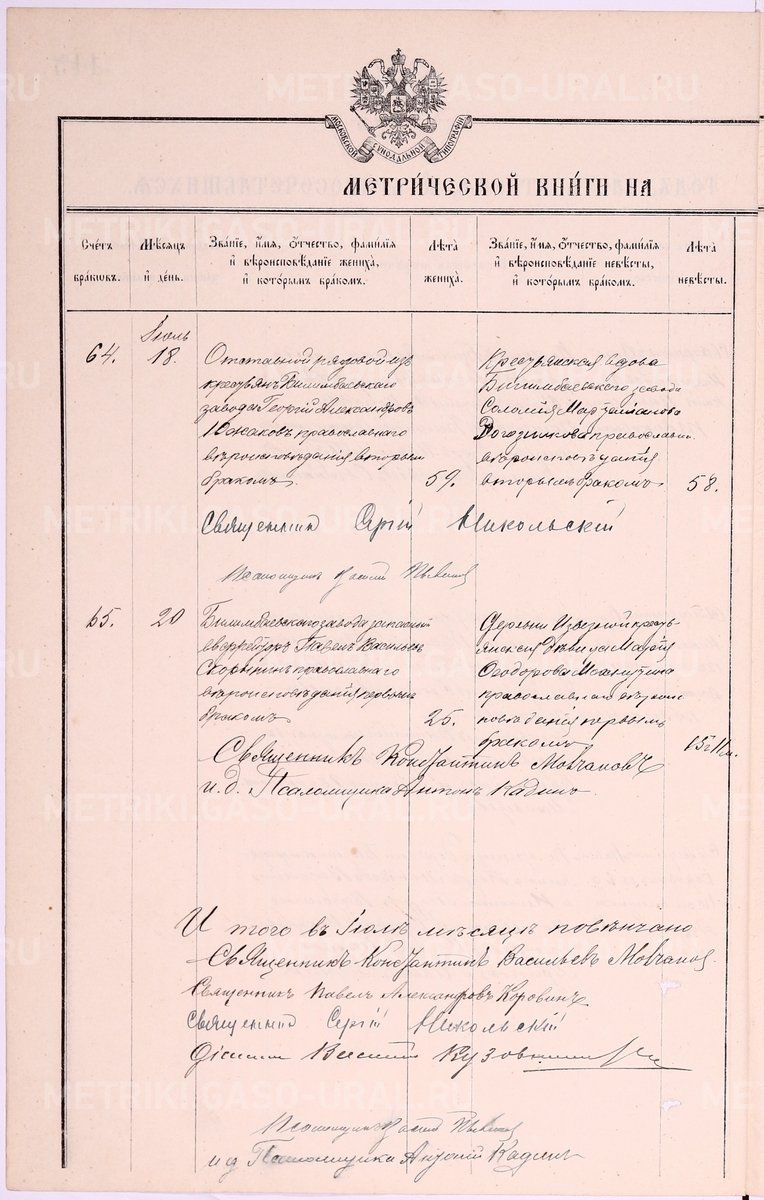 МОСКОВСКОЙ СѴНОДАЛЬНОЙ ТИПОГРАФІИ
МЕТРИ́ЧЕСКОЙ КНИ́ГИ НА
Сче́тъ бра́ковъ.
Мѣ́сяцъ и҆ де́нь.
Зва́нїе, и҆́мя, ѻ҆́тчество, фами́лїя и҆ вѣроисповѣ́данїе жениха̀, и҆ кото́рымъ бра́комъ.
Лѣ́та жениха̀.
Зва́нїе, и҆́мя, ѻ҆́тчество, фами́лїя и҆ вѣроисповѣ́данїе невѣ́сты, и҆ кото́рымъ бра́комъ.
Лѣ́та невѣ́сты.
Іюль
64.
18.
Отставной рядовой изъ
крестьянъ Билимбаевскаго
завода Георгій Александровъ
Южаковъ православнаго
вѣроисповѣданія вторымъ
бракомъ.
59.
Крестьянская вдова
Билимбаевскаго завода
Соломія
Рогозникова православн.
вѣроисповѣданія
вторымъ бракомъ
58.
Священник Сергій Никольскій
Псаломщикъ
65.
20
Билимбаевскаго завода запасный
ефрейторъ Павелъ Васильевъ
Скорынинъ православнаго
вѣроисповѣданія первымъ
бракомъ
25.
Деревни крестьянская дѣвица Марія
Ѳеодорова
православнаго вѣроис-
повѣданія первымъ
бракомъ
15 г 11 м.
Священникъ Константинъ Мовчановъ
и. д. Псаломщика Антонъ Кадинъ.
И того въ Іюлѣ мѣсяцѣ повѣнчано
Священникъ Константинъ Васильевъ Мовчановъ.
Священникъ Павелъ Александровъ Коровинъ
Священник Сергій Никольскій
Діаконъ
Псаломщикъ
и д Псаломщика Антоній Кадинъ
METRIKI.GASO-URAL.RU